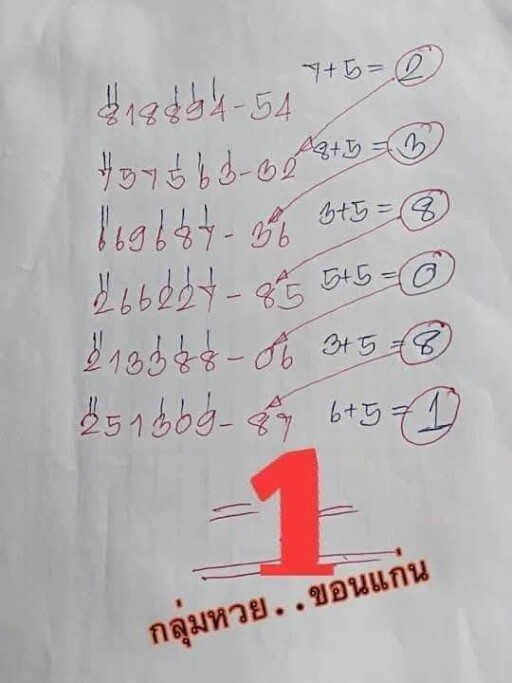 7+5= 2
818894-54
757563-32
8+5= 3
669687-36
3+5= 8
266227-85
5+5= 0
213388-06
3+5= 8
251309-87
6+5= 1
= 1 =
กลุ่มหวย..ขอนแก่น